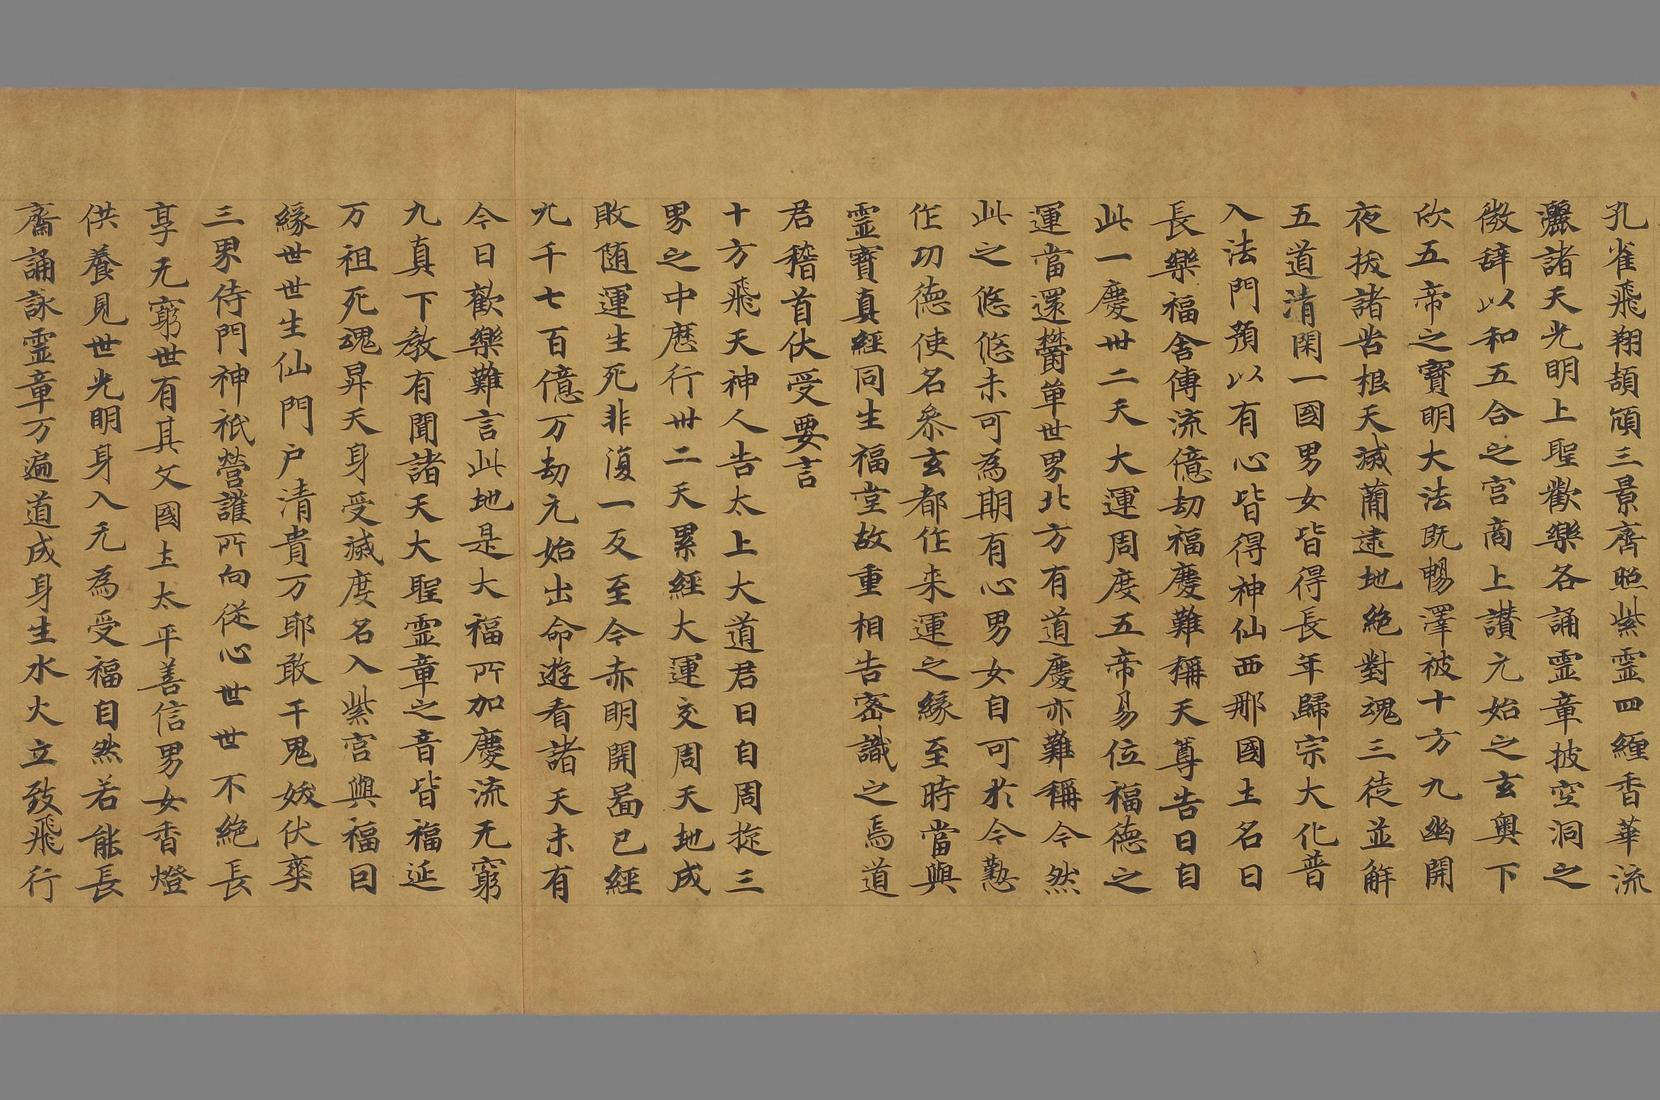 孔雀飛翔頡頏三景齊照紫霊四纏香華流
灑諸天光明上聖歡樂各誦霊章披空洞之
微辞以和五合之宮商上讃元始之玄奥下
欣五帝之寶明大法既暢澤被十方九幽開
夜拔諸苦根天滅蘭逮地絶對魂三徒並解
五道清閑一國男女皆得長年歸宗大化普
入法門預以有心皆得神仙西那國土名曰
長樂福舍傳流億劫福慶難稱天尊告曰自
此一慶卅二天大運周度五帝易位福德之
運當還欝單世界北方有道慶亦難稱今然
此之悠悠未可為期有心男女自可於今懃
作功德使名叅玄都作来運之緣至時當與
霊寶真經同生福堂故重相告密識之焉道
君稽首伏受要言
十方飛天神人告太上大道君曰自周㝎三
界之中歷行卅二天累經大運交周天地成
敗随運生死非復一反至今赤明開啚已經
九千七百億万劫元始出命遊看諸天未有
今日歡樂難言此地是大福所加慶流无窮
九真下教有聞諸天大聖霊章之音皆福延
万祖死魂昇天身受滅度名入紫宮與福回
緣世世生仙門户清貴万耶敢干鬼妖伏奕
三界侍門神祇營護所向從心世世不絶長
享无窮世有其文國主太平善信男女香燈
供養見世光明身入无為受福自然若能長
齋誦詠霊章万遍道成身生水火立致飛行